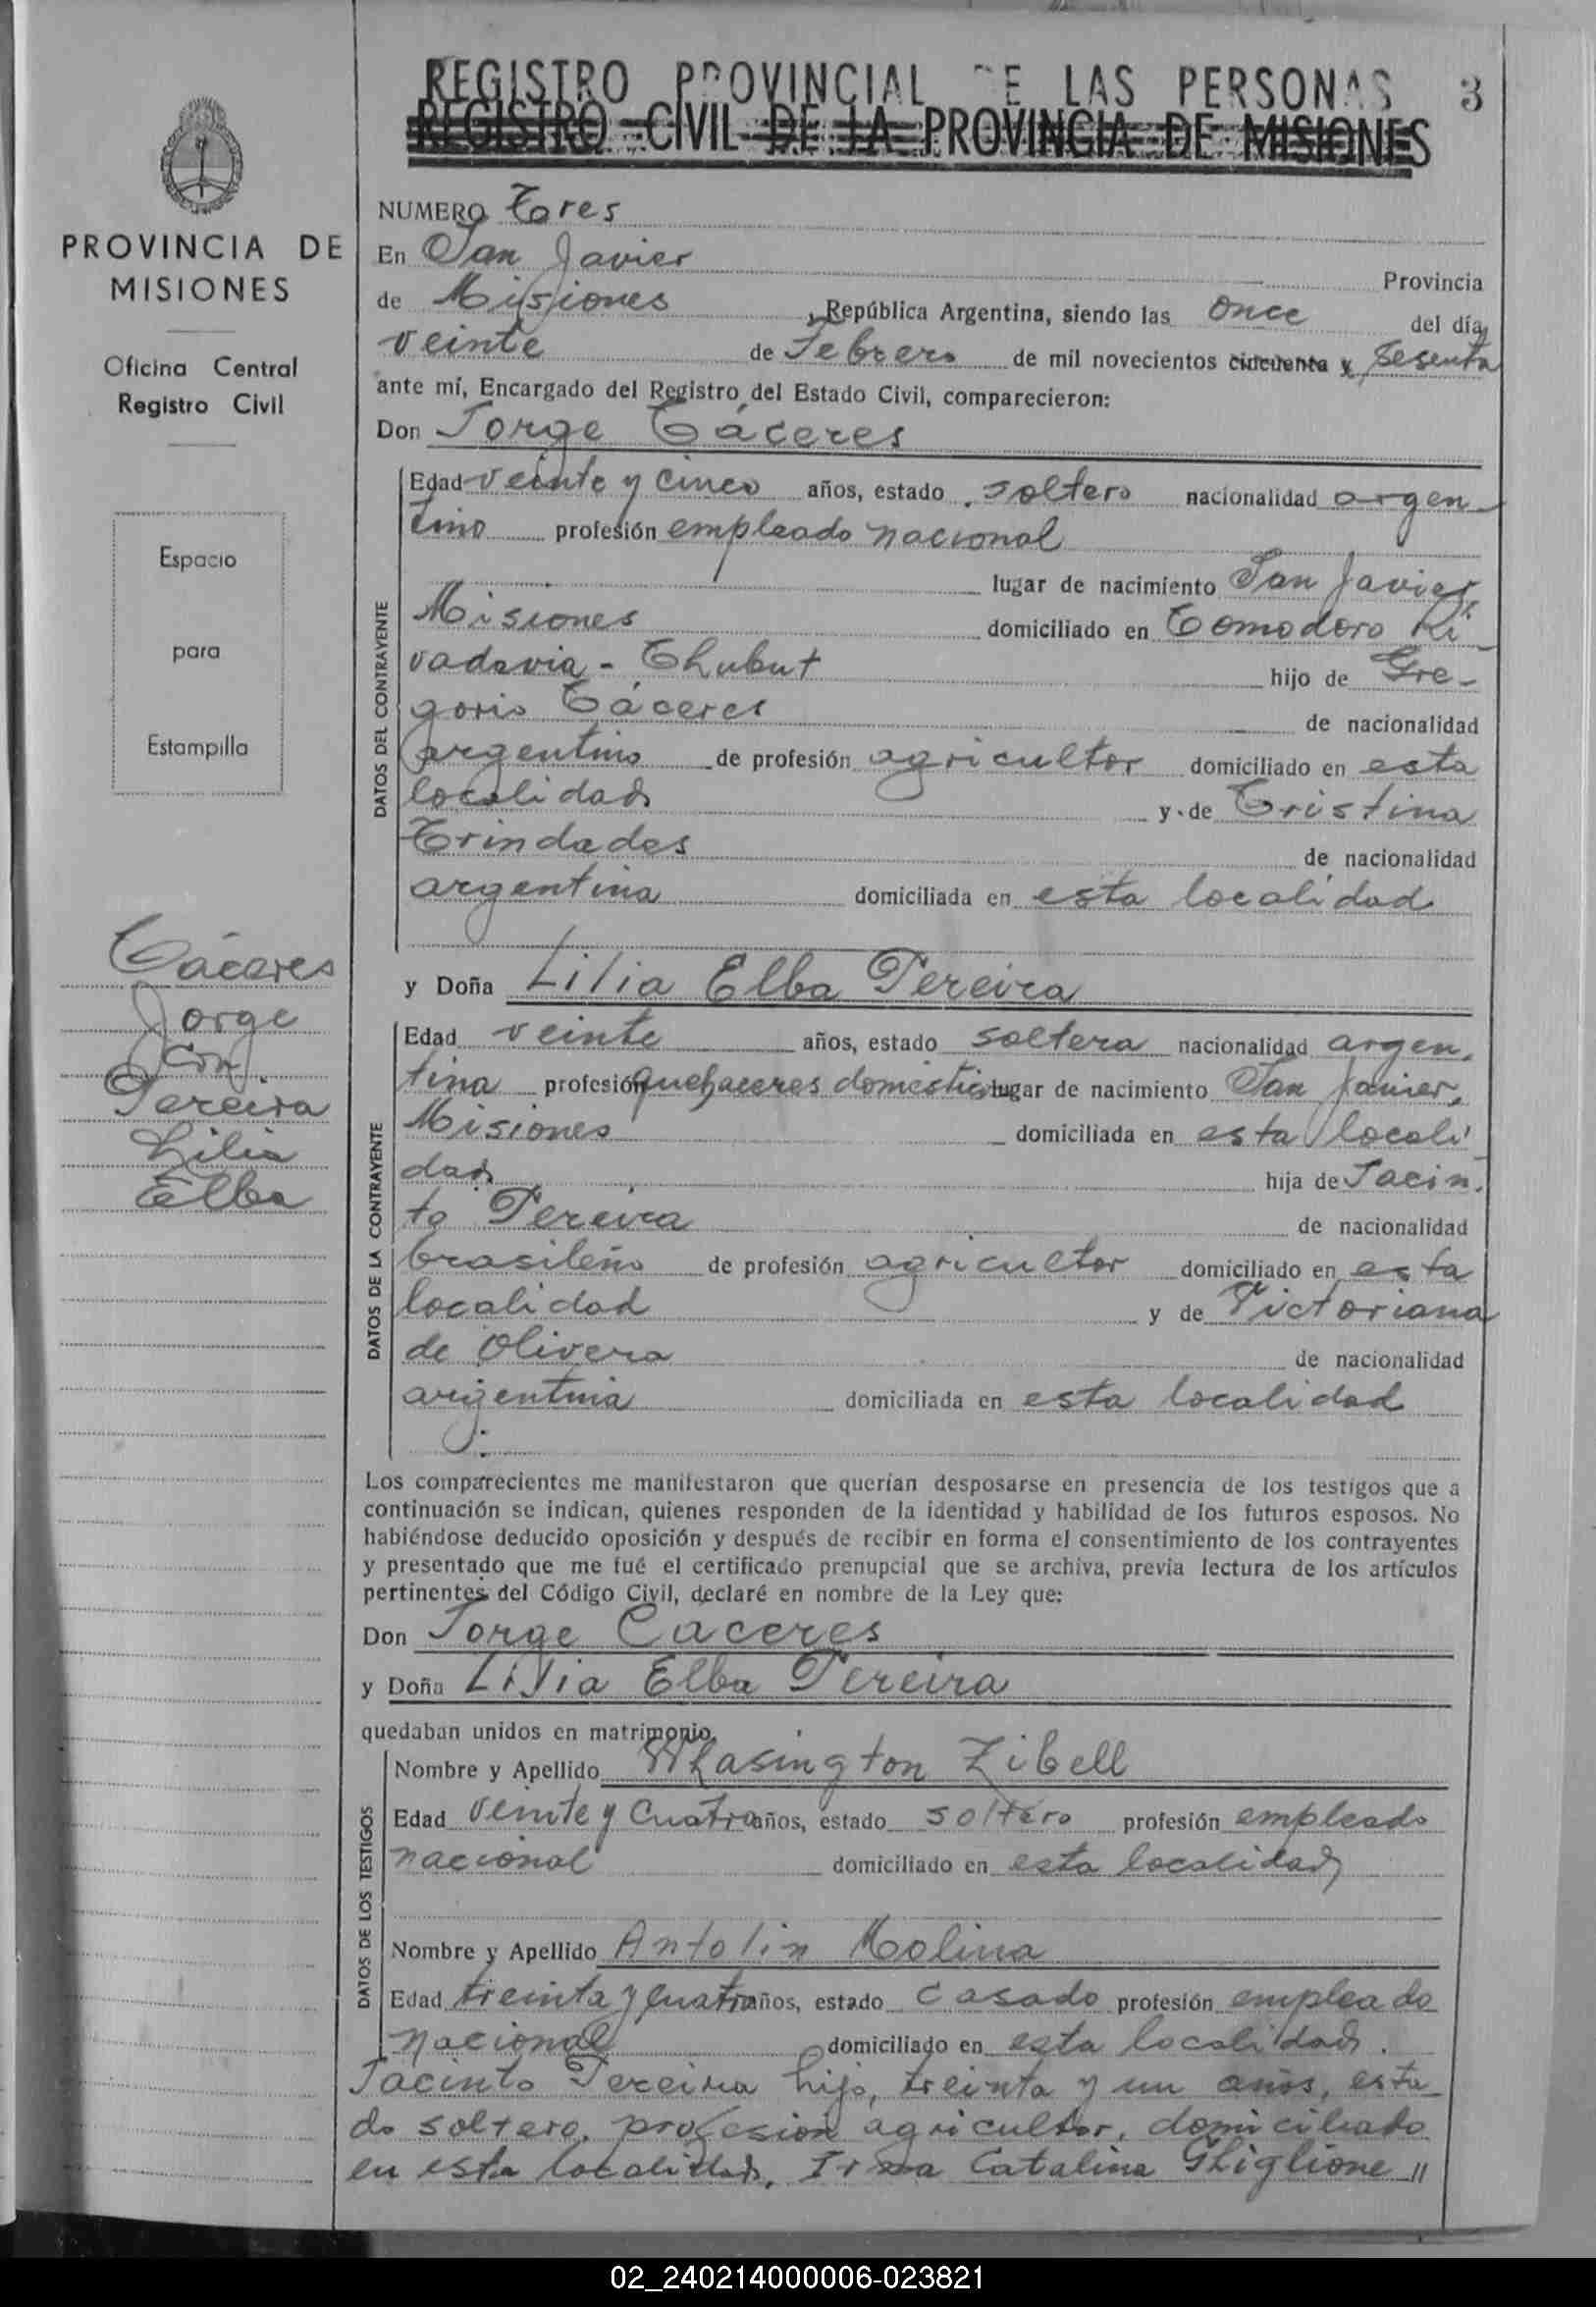 REGISTRO PROVINCIAL DE LAS PERSONAS 3
REGISTRO CIVIL DE LA PROVINCIA DE MISIONES
PROVINCIA DE
MISIONES
Oficina Central
Registro Civil
Espacio
para
Estampilla
Cáceres
Jorge
con
Pereira
Lilia
Elba
NUMERO Tres
En San Javier Provincia
de Misiones, República Argentina, siendo las once del día
veinte de Febrero de mil novecientos cincuenta y Sesenta
ante mí, Encargado del Registro del Estado Civil, comparecieron:
Don Jorge Cáceres
DATOS DEL CONTRAYENTE
Edad veinte y cinco años, estado soltero nacionalidad argen-
tino profesión empleado nacional
lugar de nacimiento San Javier,
Misiones domiciliado en Comodoro Ri-
vadavia - Chubut hijo de Gre-
gorio Cáceres de nacionalidad
argentino de profesión agricultor domiciliado en esta
localidad y de Cristina
Trindades de nacionalidad
argentina domiciliada en esta localidad
y Doña Lilia Elba Pereira
DATOS DE LA CONTRAYENTE
Edad veinte años, estado soltera nacionalidad argen-
tina profesión quehaceres domésticos lugar de nacimiento San Javier,
Misiones domiciliada en esta locali-
dad hija de Jacin-
to Pereira de nacionalidad
brasileño de profesión agricultor domiciliado en esta
localidad y de Victoriana
de Olivera de nacionalidad
argentina domiciliada en esta localidad
Los comparecientes me manifestaron que querían desposarse en presencia de los testigos que a
continuación se indican, quienes responden de la identidad y habilidad de los futuros esposos. No
habiéndose deducido oposición y después de recibir en forma el consentimiento de los contrayentes
y presentado que me fué el certificado prenupcial que se archiva, previa lectura de los artículos
pertinentes del Código Civil, declaré en nombre de la Ley que:
Don Jorge Caceres
y Doña Lilia Elba Pereira
quedaban unidos en matrimonio.
DATOS DE LOS TESTIGOS
Nombre y Apellido Whasington Zibell
Edad veinte y cuatro años, estado soltero profesión empleado
nacional domiciliado en esta localidad
Nombre y Apellido Antolin Molina
Edad treinta y cuatro años, estado casado profesión empleado
nacional domiciliado en esta localidad.
Jacinto Pereira hijo, treinta y un años, esta-
do soltero, profesion agricultor, domiciliado
en esta localidad, Irma Catalina Ghiglione //
02_240214000006-023821